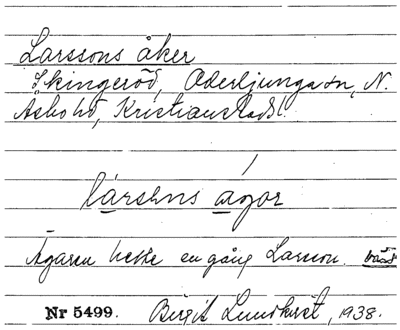 Larssons åker
Skingeröd, Oderljunga sn, N.
Åsbo hd, Kristianstads l.
lársens ágor
Ägaren hette en gång Larsson.
Nr 5499. Birgit Lundkvist, 1938.